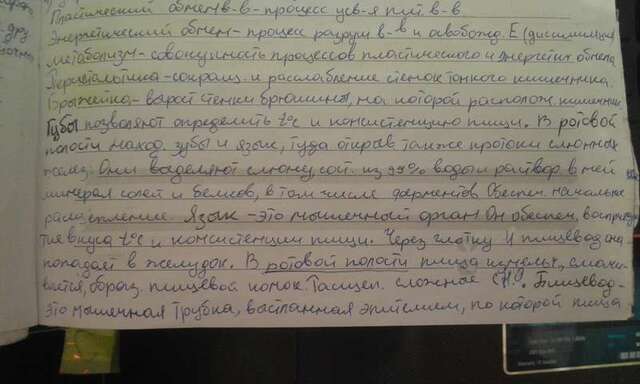 Пластический обмен в-в - процесс усв-я пит. в-в.
Энергетический обмен - процес разруш в-в и освобожд. Е (диссимиляция)
метаболизм - совокупность процессов пластического и энергетич обмена
Перистальтика - сокращ. и расслабление стенок тонкого кишечника.
Брыжейка - вырост стенки брюшины, на которой располож. кишечник
Губы позволяют определить t°с и консистенцию пищи. В ротовой
полости наход. зубы и язык, туда открыв также протоки слюнных
желез. Они выделяют слюну, сост. из 99% воды и раствор. в ней
минерал солей и белков, в том числе ферментов Обеспеч. начальное
расщепление. Язык - это мышечный орган Он обеспеч, восприя
тие вкуса t°с и консистенции пищи. Через глотку и пищевод она
попадает в желудок. В ротовой полости пища измельч, смачи-
вается, образ. пищевой комок. Расщеп. сложные Пищевод-
это мышечная трубка, выстланная эпителием, по которой пища